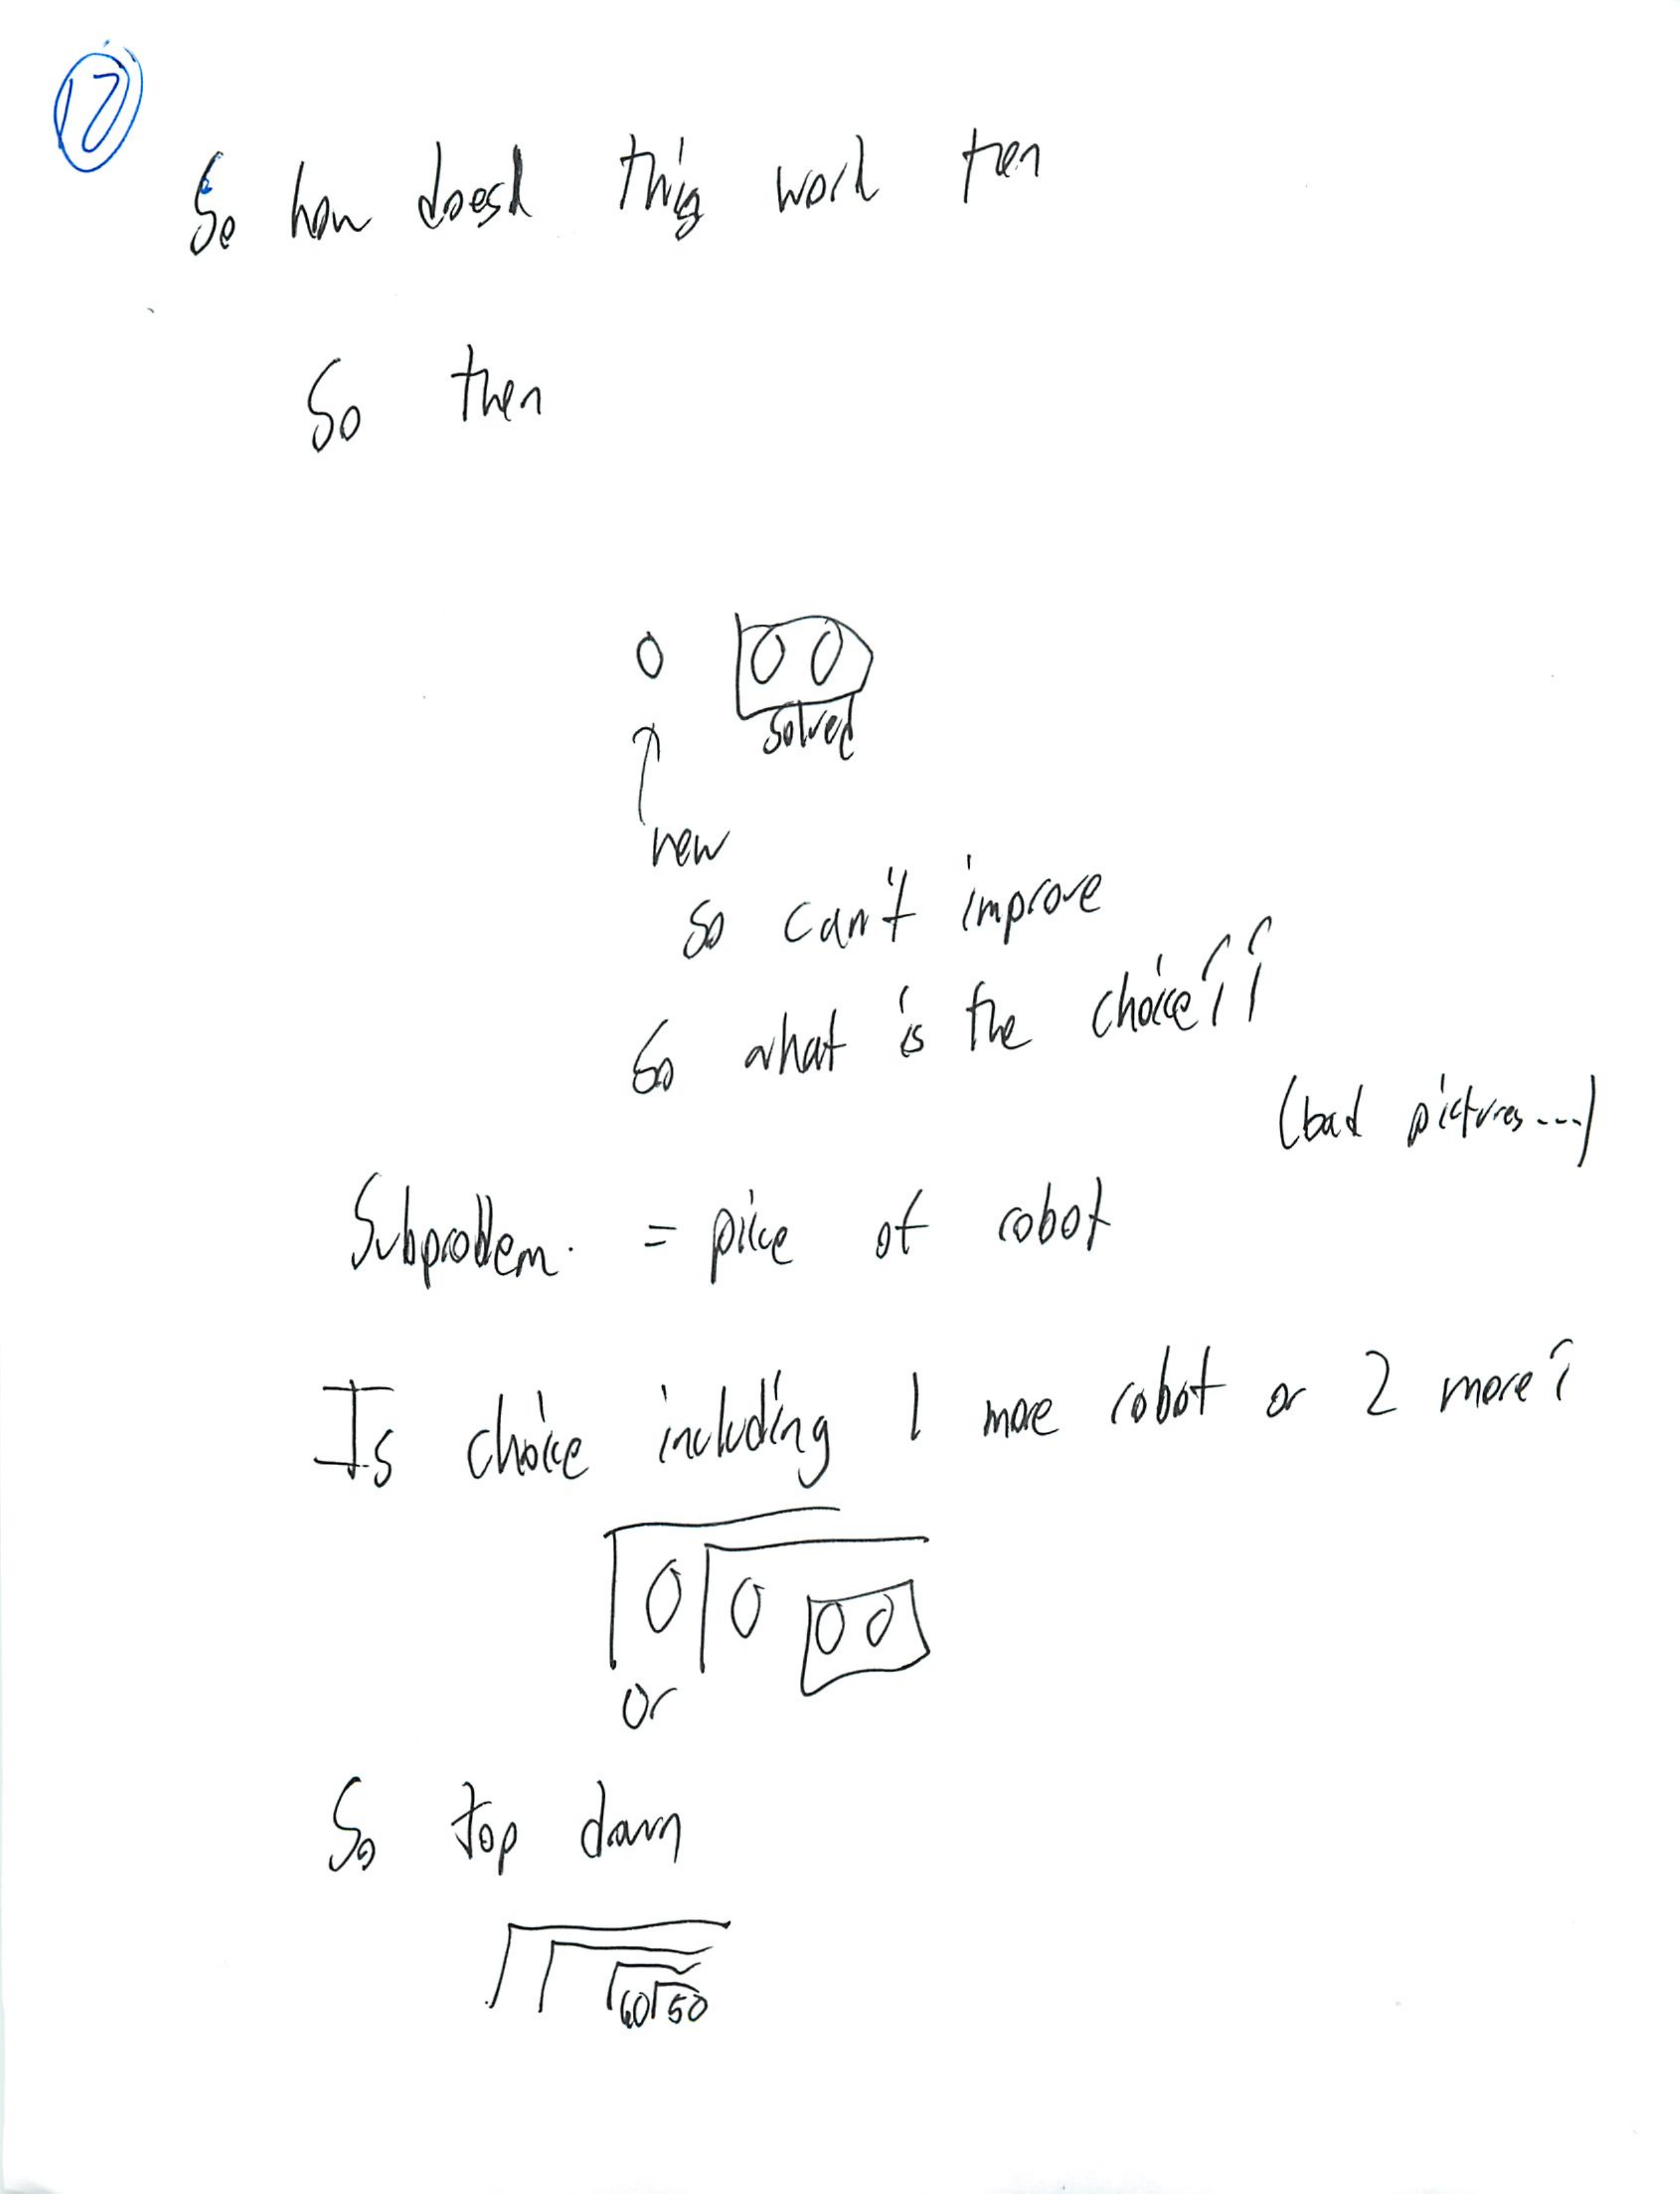 17
So how does this work then
So then
0 00
solved
new
so can't improve
So what is the choice??
(bad pictures...)
Subproblem. = price of robot
Is choice including 1 more robot or 2 more?
0 0 00
or
So top down
60 50